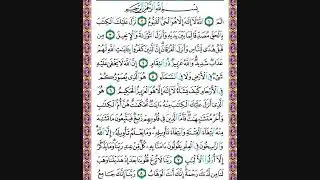 بِسْمِ اللَّهِ الرَّحْمَٰنِ الرَّحِيمِ
الٓمٓ ۝١ اللَّهُ لَا إِلَٰهَ إِلَّا هُوَ الْحَيُّ الْقَيُّومُ ۝٢ نَزَّلَ عَلَيْكَ الْكِتَٰبَ
بِالْحَقِّ مُصَدِّقًا لِّمَا بَيْنَ يَدَيْهِ وَأَنزَلَ التَّوْرَىٰةَ وَالْإِنجِيلَ ۝٣ مِن
قَبْلُ هُدًى لِّلنَّاسِ وَأَنزَلَ الْفُرْقَانَ إِنَّ الَّذِينَ كَفَرُوا بِـَٔايَٰتِ اللَّهِ لَهُمْ
عَذَابٌ شَدِيدٌ وَاللَّهُ عَزِيزٌ ذُو انتِقَامٍ ۝٤ إِنَّ اللَّهَ لَا يَخْفَىٰ عَلَيْهِ
شَيْءٌ فِي الْأَرْضِ وَلَا فِي السَّمَاءِ ۝٥ هُوَ الَّذِي يُصَوِّرُكُمْ
فِي الْأَرْحَامِ كَيْفَ يَشَاءُ لَا إِلَٰهَ إِلَّا هُوَ الْعَزِيزُ الْحَكِيمُ ۝٦ هُوَ الَّذِي
أَنزَلَ عَلَيْكَ الْكِتَٰبَ مِنْهُ ءَايَٰتٌ مُّحْكَمَٰتٌ هُنَّ أُمُّ الْكِتَٰبِ
وَأُخَرُ مُتَشَٰبِهَٰتٌ فَأَمَّا الَّذِينَ فِي قُلُوبِهِمْ زَيْغٌ فَيَتَّبِعُونَ مَا تَشَٰبَهَ
مِنْهُ ابْتِغَاءَ الْفِتْنَةِ وَابْتِغَاءَ تَأْوِيلِهِ وَمَا يَعْلَمُ تَأْوِيلَهُ إِلَّا اللَّهُ
وَالرَّٰسِخُونَ فِي الْعِلْمِ يَقُولُونَ ءَامَنَّا بِهِ كُلٌّ مِّنْ عِندِ رَبِّنَا وَمَا يَذَّكَّرُ
إِلَّا أُولُوا الْأَلْبَٰبِ ۝٧ رَبَّنَا لَا تُزِغْ قُلُوبَنَا بَعْدَ إِذْ هَدَيْتَنَا وَهَبْ
لَنَا مِن لَّدُنكَ رَحْمَةً إِنَّكَ أَنتَ الْوَهَّابُ ۝٨ رَبَّنَا إِنَّكَ جَامِعُ